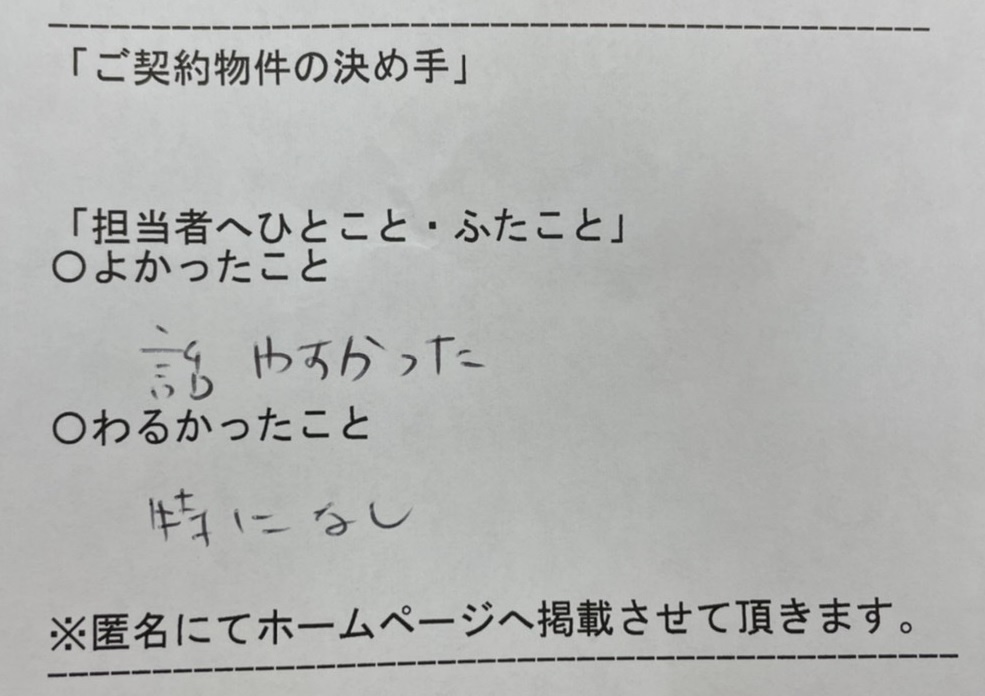 「ご契約物件の決め手」
「担当者へひとこと・ふたこと」
○よかったこと
話やすかった
○わるかったこと
特になし
※匿名にてホームページへ掲載させて頂きます。